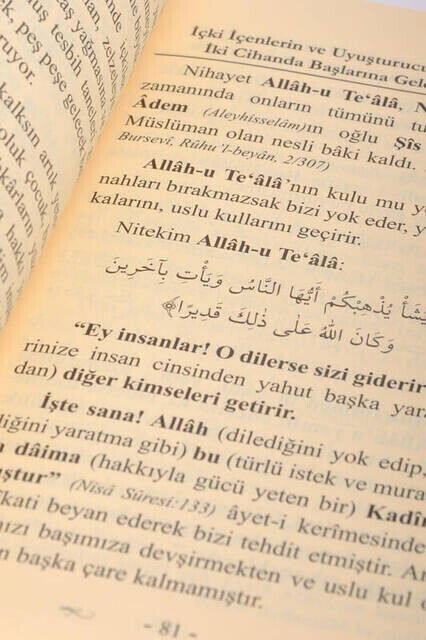 tespih taneleri
peş peşe gelecek
ruyor.
kalksın artık
oluk çocuk
İçki İçenlerin ve Uyuşturucu
İki Cihanda Başlarına Gele
Nihayet Allâh-u Te‘âlâ, N
zamanında onların tümünü tu
Âdem (Aleyhisselâm)ın oğlu Şîs
Müslüman olan nesli bâki kaldı.
Bursevî, Rûhu'l-beyân, 2/307)
Allâh-u Te‘âlâ'nın kulu mu y
nahları bırakmazsak bizi yok eder, y
kalarını, uslu kullarını geçirir.
Nitekim Allâh-u Te‘âlâ:
يَشَأْ يُذْهِبْكُمْ أَيُّهَا النَّاسُ وَيَأْتِ بِآخَرِينَ
وَكَانَ اللهُ عَلَى ذٰلِكَ قَدِيرًا﴾
“Ey insanlar! O dilerse sizi giderir
rinize insan cinsinden yahut başka yara
dan) diğer kimseleri getirir.
İşte sana! Allâh (dilediğini yok edip,
diğini yaratma gibi) bu (türlü istek ve mura
dâima (hakkıyla gücü yeten bir) Kadîr
uştur” (Nisâ Sûresi:133) âyet-i kerîmesinde
kati beyan ederek bizi tehdit etmiştir. Ar
ızı başımıza devşirmekten ve uslu kul o
n başka çare kalmamıştır.
- 81 -